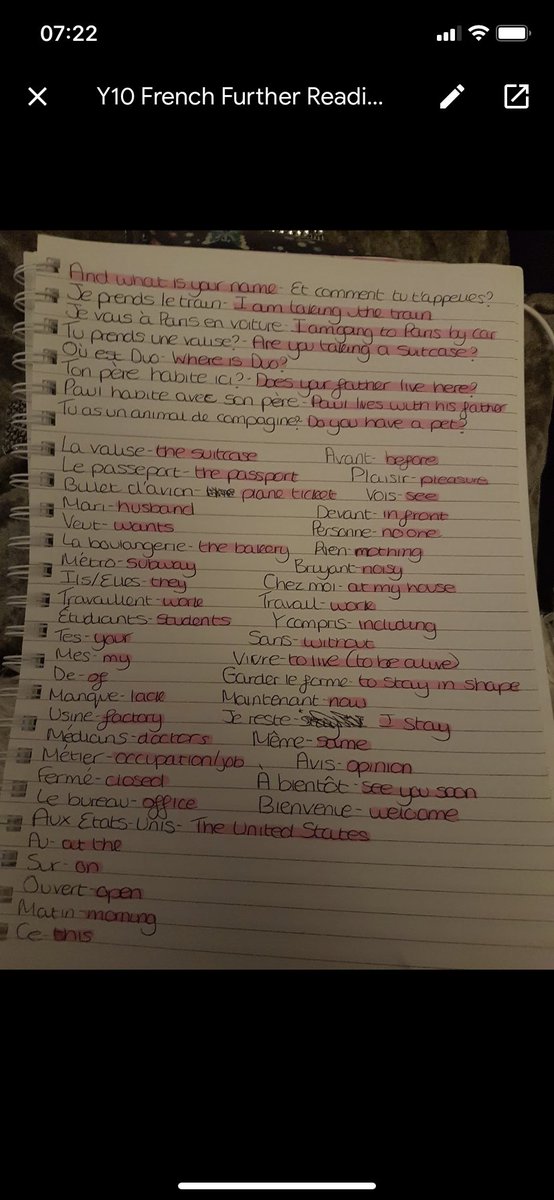 07:22
Y10 French Further Readi...
And what is your name - Et comment tu t'appelles?
Je prends le train - I am taking the train
Je vais à Paris en voiture - I am going to Paris by car
Tu prends une valise? - Are you taking a suitcase?
Où est Duo - Where is Duo?
Ton père habite ici? - Does your father live here?
Paul habite avec son père - Paul lives with his father
Tu as un animal de compagine? Do you have a pet?
La valise - the suitcase Avant - before
Le passeport - the passport Plaisir - pleasure
Billet d'avion - plane ticket Vois - see
Mari - husband Devant - in front
Veut - wants Personne - no one
La boulangerie - the bakery Rien - nothing
Métro - subway Bruyant - noisy
Ils/Elles - they Chez moi - at my house
Travaillent - work Travail - work
Étudiants - students Y compris - including
Tes - your Sans - without
Mes - my Vivre - to live (to be alive)
De - of Garder le forme - to stay in shape
Manque - lack Maintenant - now
Usine - factory Je reste - I stay
Médicins - doctors Même - same
Métier - occupation/job Avis - opinion
Fermé - closed À bientôt - see you soon
Le bureau - office Bienvenie - welcome
Aux États-Unis - The United States
Au - at the
Sur - on
Ouvert - open
Matin - morning
Ce - this